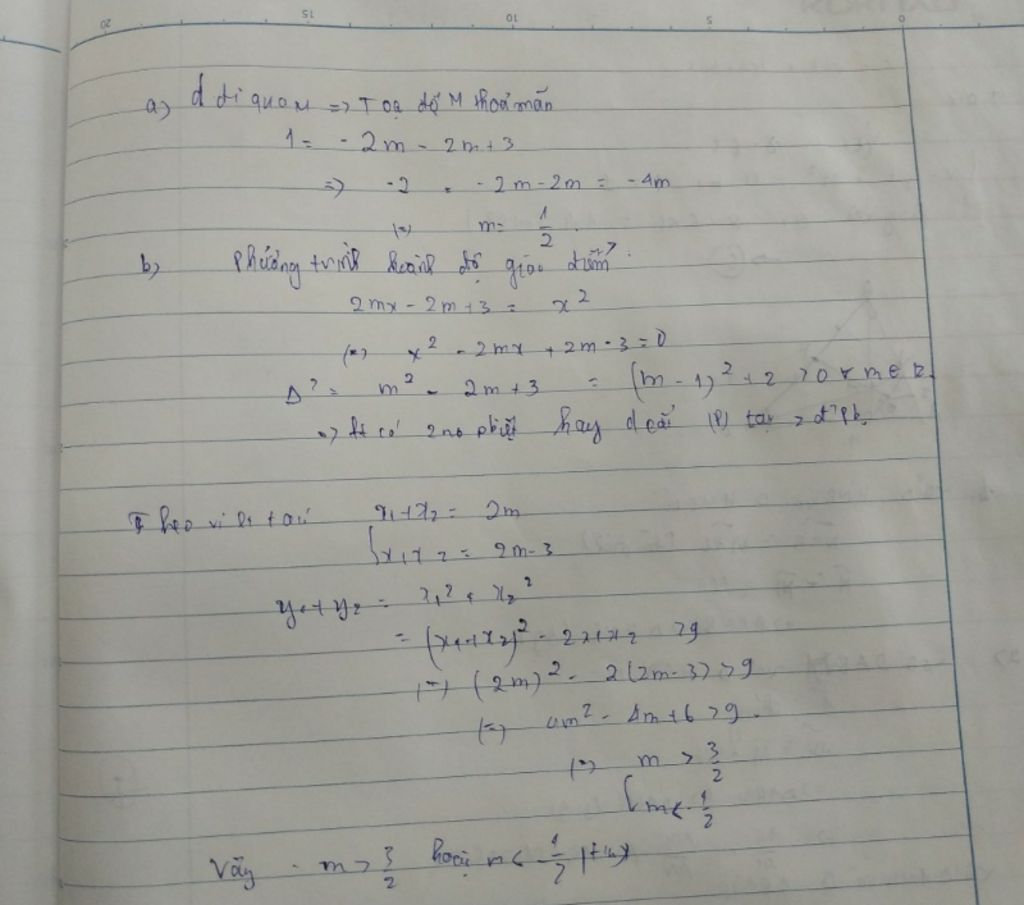 20 15 10 5 0
a) d đi qua M => Toạ độ M thoả mãn
1 = -2m - 2m + 3
=> -2 = -2m - 2m = -4m
(=) m = 1/2.
b) Phương trình hoành độ giao điểm:
2mx - 2m + 3 = x²
(=) x² - 2mx + 2m - 3 = 0
Δ' = m² - 2m + 3 = (m - 1)² + 2 > 0 ∀ m ∈ R
=> pt có 2 no pbiệt hay d cắt (P) tại 2 đ' pb.
Theo vi ét ta có x₁ + x₂ = 2m
x₁x₂ = 2m - 3
y₁ + y₂ = x₁² + x₂²
= (x₁ + x₂)² - 2x₁x₂ > 9
(=) (2m)² - 2(2m - 3) > 9
(=) 4m² - 4m + 6 > 9.
(=) m > 3/2
m < -1/2
Vậy m > 3/2 hoặc m < -1/2 (t/m)